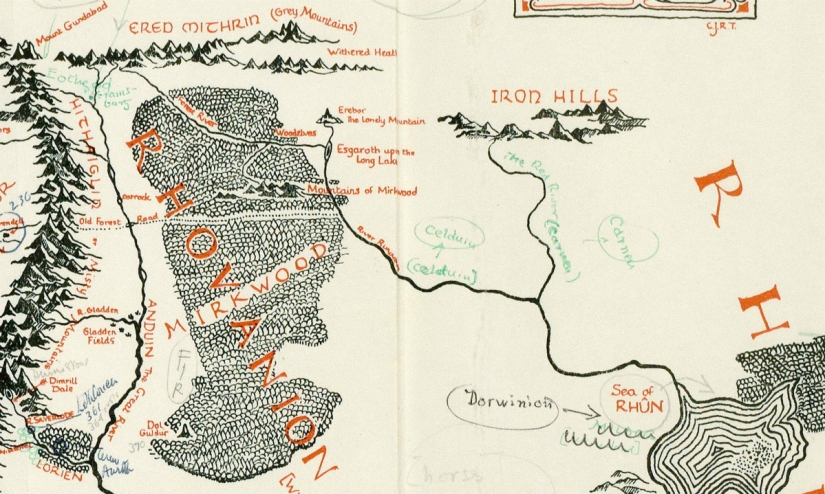 C.J.R.T.
Mount Gundabad
ERED MITHRIN (Grey Mountains)
Withered Heath
IRON HILLS
Forest River
Erebor
The Lonely Mountain
Woodelves
Esgaroth upon the
Long Lake
Mountains of Mirkwood
HITHAIGLIR
or Misty Mountains
Carrock
Old Forest Road
236
River Running
Celduin
(Celduin)
The Red River (Carnen)
Carnen
RHOVANION
MIRKWOOD
R H
ANDUIN The Great River
R. Gladden
Gladden
Fields
Dimrill
Dale
R. Silverlode
LORIEN
Dol
Guldur
FIR
Dorwinion
Sea of
RHÛN